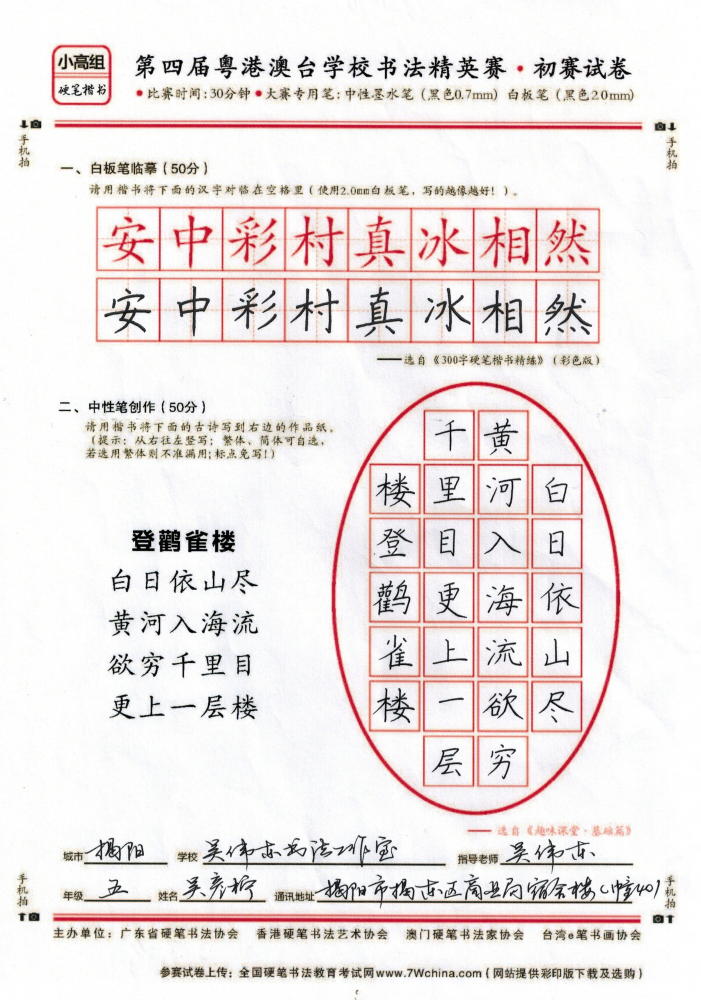 小高组
硬笔楷书
第四届粤港澳台学校书法精英赛·初赛试卷
•比赛时间:30分钟 •大赛专用笔:中性墨水笔(黑色0.7mm) 白板笔(黑色2.0mm)
手机拍
手机拍
一、白板笔临摹(50分)
请用楷书将下面的汉字对临在空格里(使用2.0mm白板笔,写的越像越好!)。
安中彩村真冰相然
安中彩村真冰相然
——选自《300字硬笔楷书精练》(彩色版)
二、中性笔创作(50分)
请用楷书将下面的古诗写到右边的作品纸。
(提示:从右往左竖写;繁体、简体可自选,
若选用繁体则不准漏用;标点免写!)
登鹳雀楼
白日依山尽
黄河入海流
欲穷千里目
更上一层楼
白日依山尽
黄河入海流欲穷
千里目更上一层
楼登鹳雀楼
——选自《趣味课堂·基础篇》
城市 揭阳 学校 吴伟东书法工作室 指导老师 吴伟东
年级 五 姓名 吴彦柠 通讯地址 揭阳市揭东区商业局宿舍楼(幢40)
手机拍
手机拍
主办单位:广东省硬笔书法协会 香港硬笔书法艺术协会 澳门硬笔书法家协会 台湾e笔书画协会
参赛试卷上传:全国硬笔书法教育考试网www.7Wchina.com(网站提供彩印版下载及选购)